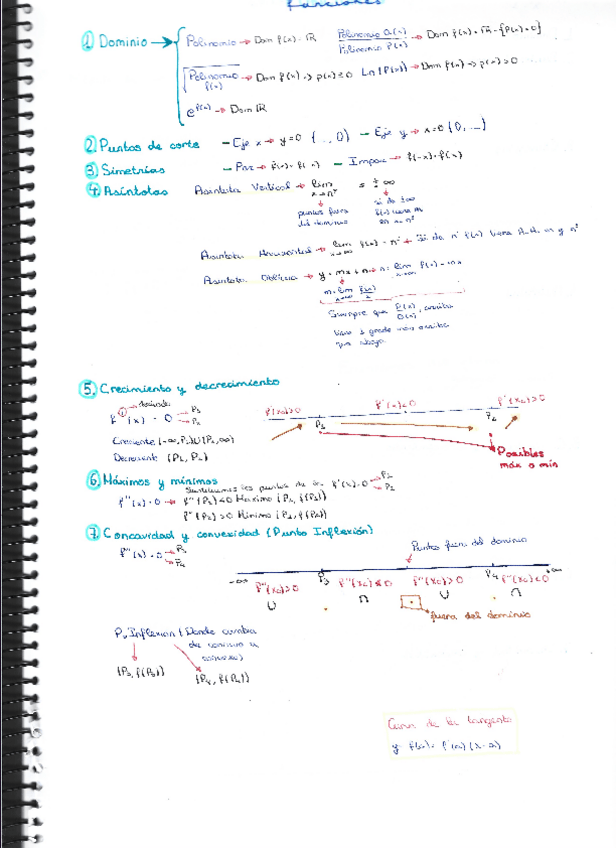 Funciones
① Dominio →
Polinomio → Dom f(x) = ℝ
Polinomio Q(x) / Polinomio P(x) → Dom f(x) = ℝ - {P(x) = 0}
√Polinomio f(x) → Dom f(x) → p(x) ≥ 0
Ln (P(x)) → Dom f(x) → p(x) > 0
e^P(x) → Dom ℝ
② Puntos de corte - Eje x → y=0 (...,0) - Eje y → x=0 (0,...)
③ Simetrías - Par → f(x) = f( x) - Impar → f(-x) = f(x)
④ Asíntotas Asíntota Vertical → lim x→nº = ± ∞
puntos fuera del dominio
si da ±∞ f(x) tiene
en x = nº
Asíntota Horizontal → lim x→∞ f(x) = nº → Si da nº f(x) tiene A.H. en y = nº
Asíntota Oblicua → y = mx + n → n = lim x→∞ f(x) - mx
m = lim x→∞ f(x)/x
Siempre que P(x)/Q(x), arriba
tiene 1 grado más arriba
que abajo
5. Crecimiento y decrecimiento
→ derivada
f'(x) = 0 → P₁ → P₂
f'(x₀)>0 f'(x)<0 f'(x₀)>0
P₁ P₂
Creciente (-∞, P₁)U(P₂, ∞)
Decreciente (P₁, P₂)
Posibles
máx o mín
⑥ Máximos y mínimos
Sustituimos los puntos de la f'(x)=0 → P₁ → P₂
f''(x) = 0 → f''(P₁) < 0 Máximo (P₁, f(P₁))
f''(P₂) > 0 Mínimo (P₂, f(P₂))
⑦ Concavidad y convexidad (Punto Inflexión)
f''(x) = 0 → P₃ → P₄
Puntos fuera del dominio
-∞ f''(x₀)>0 P₃ f''(x₀)≤0 f''(x₀)>0 P₄ f''(x₀)<0 ∞
∪ ∩ ∪ ∩
fuera del dominio
P. Inflexión (Donde cambia
de cóncavo a
convexo)
(P₃, f(P₃))
(P₄, f(P₄))
de la tangente
y = f(a) = f'(a) (x-a)